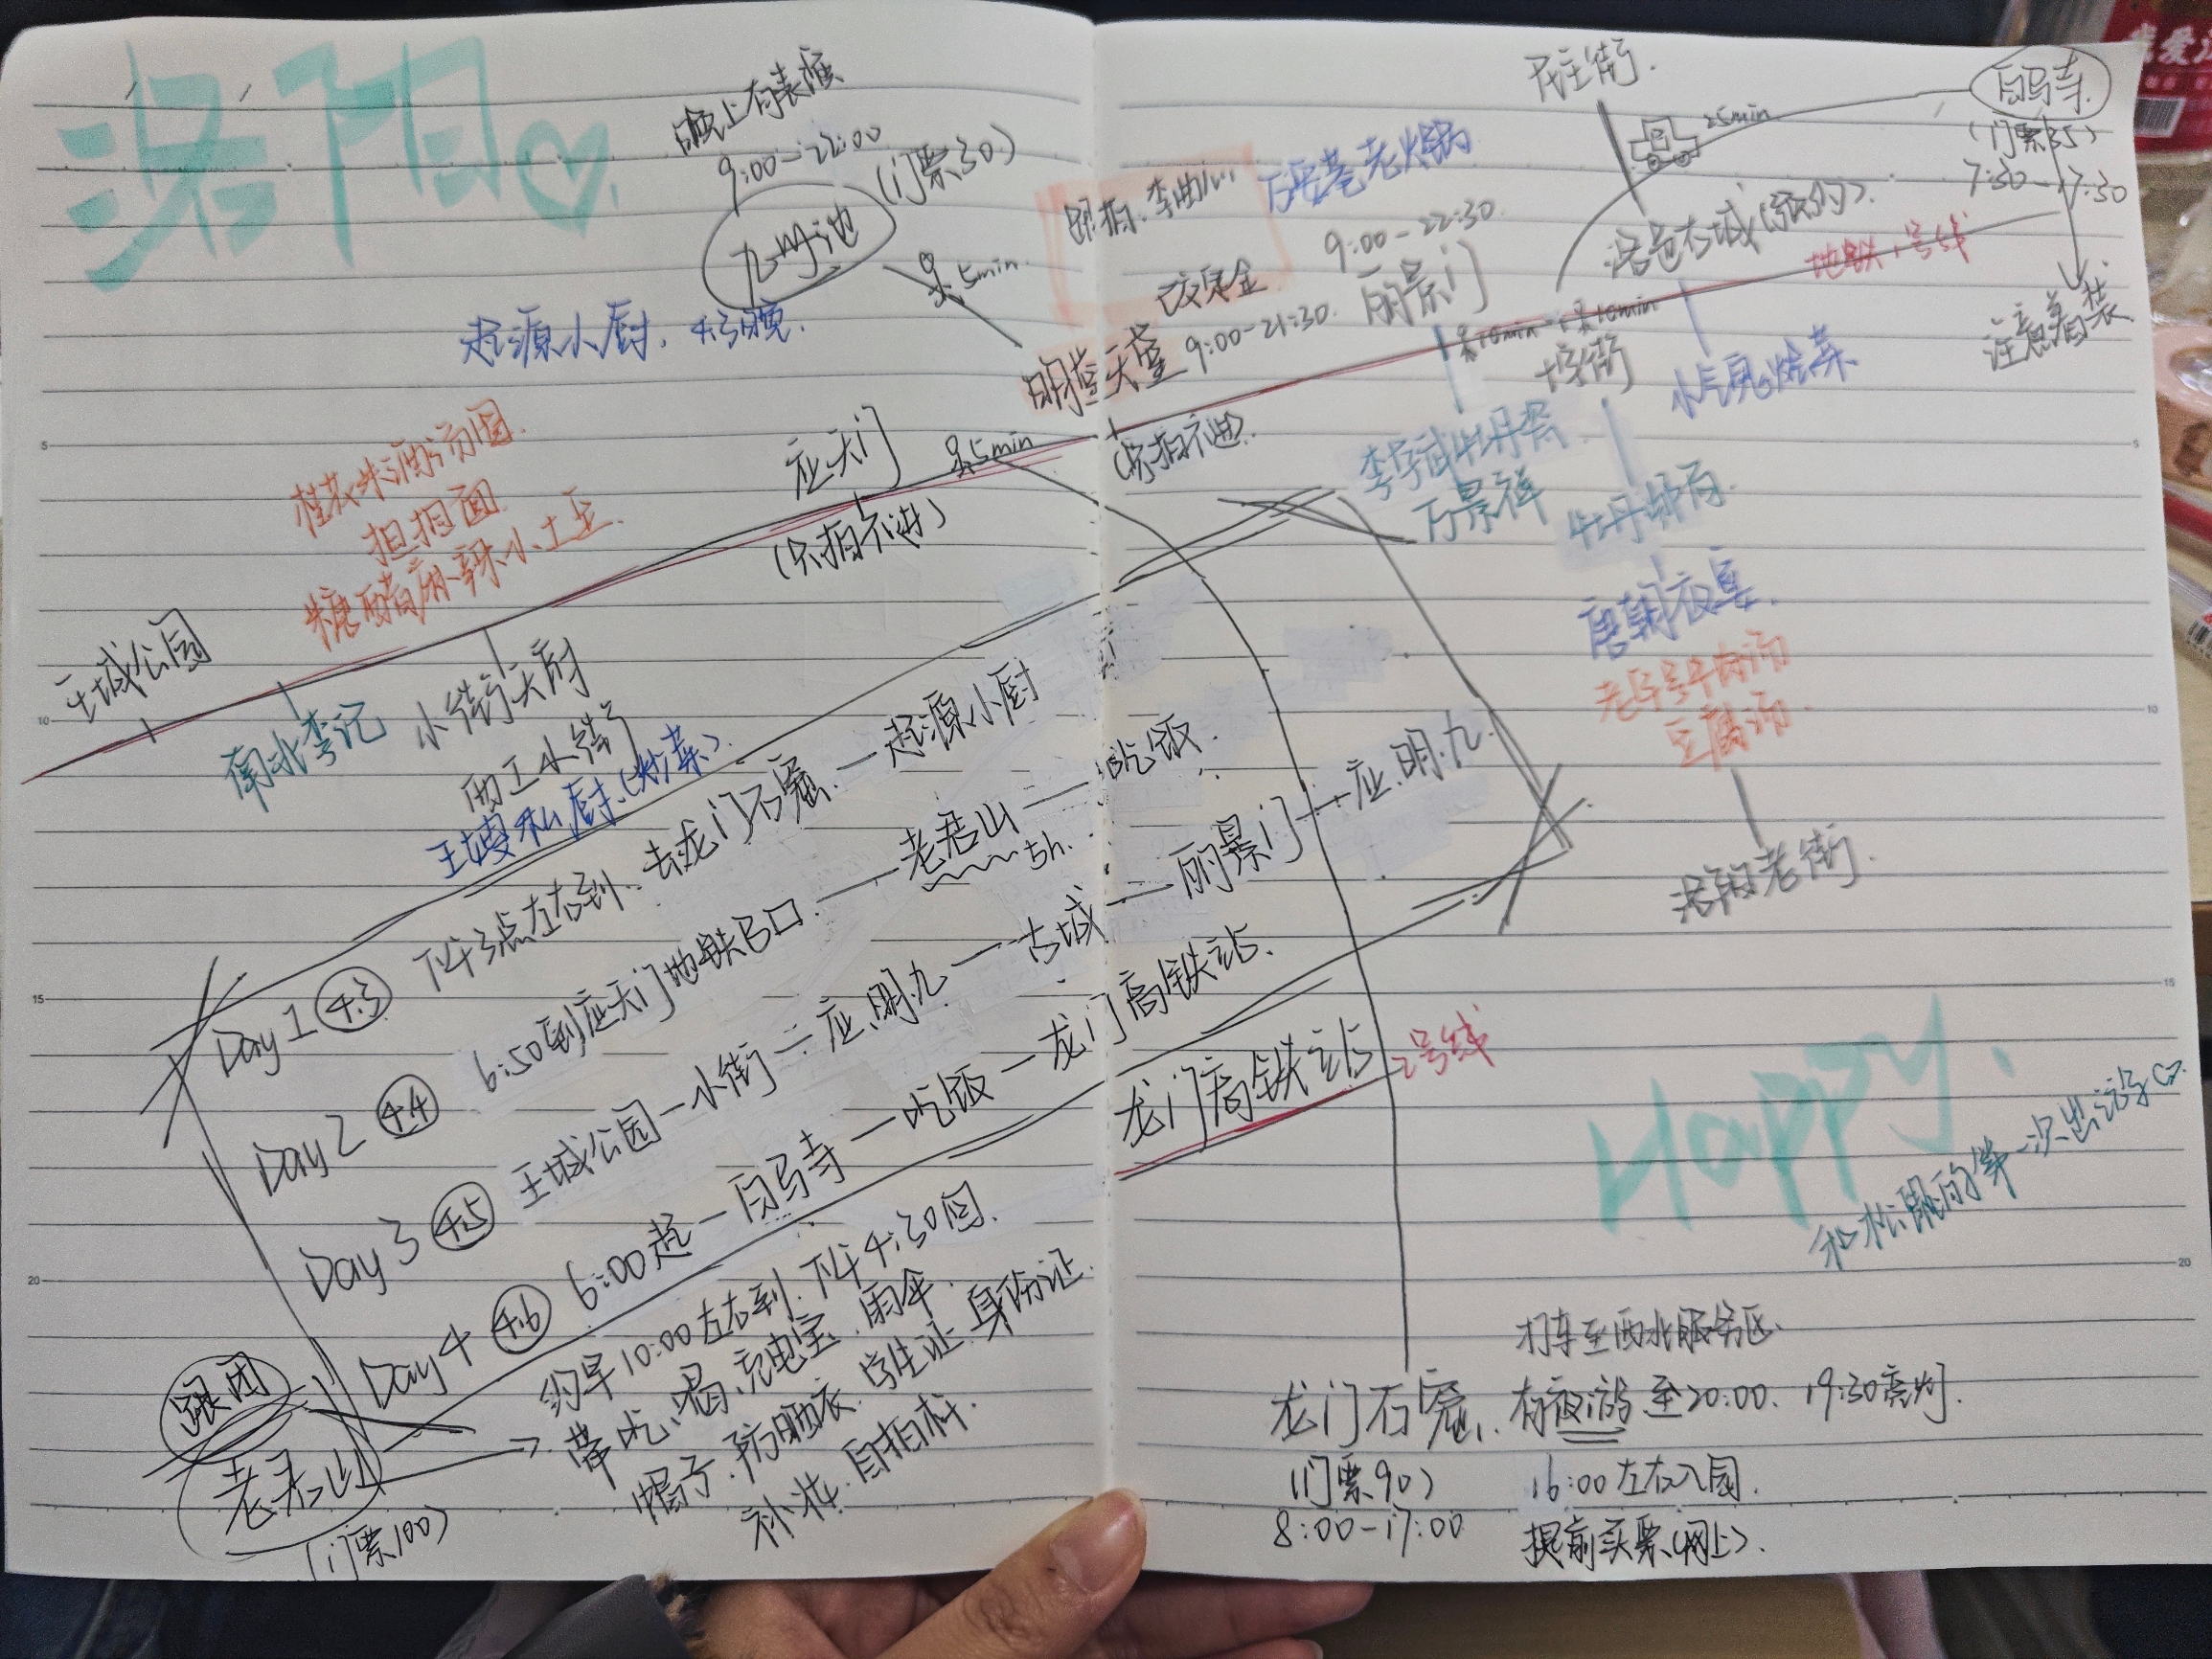 洛阳♡
晚上有表演
9:00-22:00
(门票30)
九洲池
5min
跟拍、李曲心
已交定金
明堂天堂 9:00-21:30.
(只拍不进)
9:00-22:30
丽景门
民主街.
25min
白马寺
(门票35)
7:30-17:30
注意着装
洛邑古城(预约).
地铁1号线
10min
10min
十字街
小气鬼烩菜
起源小厨. 4号晚.
桂花米酒汤圆.
担担面
糖醋麻辣小土豆.
应天门
5min
(只拍不进)
王城公园
南北李记
小街天府
西工小街
王嫂私厨.(炒菜).
万景祥
唐朝夜宴.
老字号牛肉汤
豆腐汤.
洛阳老街.
Day1 4.3 下午3点左右到、去龙门石窟.—起源小厨
Day2 4.4 6:50到应天门地铁B口.—老君山—吃饭.
5h.
Day3 4.5 王城公园—小街—应.明.九—古城—丽景门—应.明.九.
Day4 4.6 6:00起—白马寺—吃饭—龙门高铁站.
龙门高铁站
2号线
跟团
老君山
(门票100)
约早10:00左右到.下午4:30回.
带吃、喝、充电宝、雨伞.
帽子.防晒衣.学生证.身份证.
补妆.自拍杆.
Happy.
打车至西北服务区.
龙门石窟. 有夜游至20:00. 19:30亮灯.
(门票90)
8:00-17:00
16:00左右入园.
提前买票(网上).